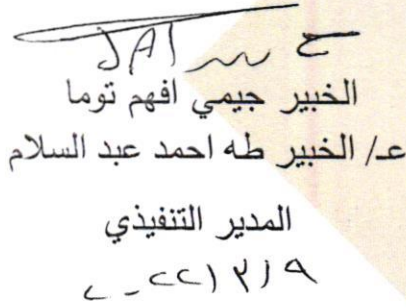 الخبير جيمي افهم توما
عـ/ الخبير طه احمد عبد السلام
المدير التنفيذي
٢٠٢٢/٣/٩